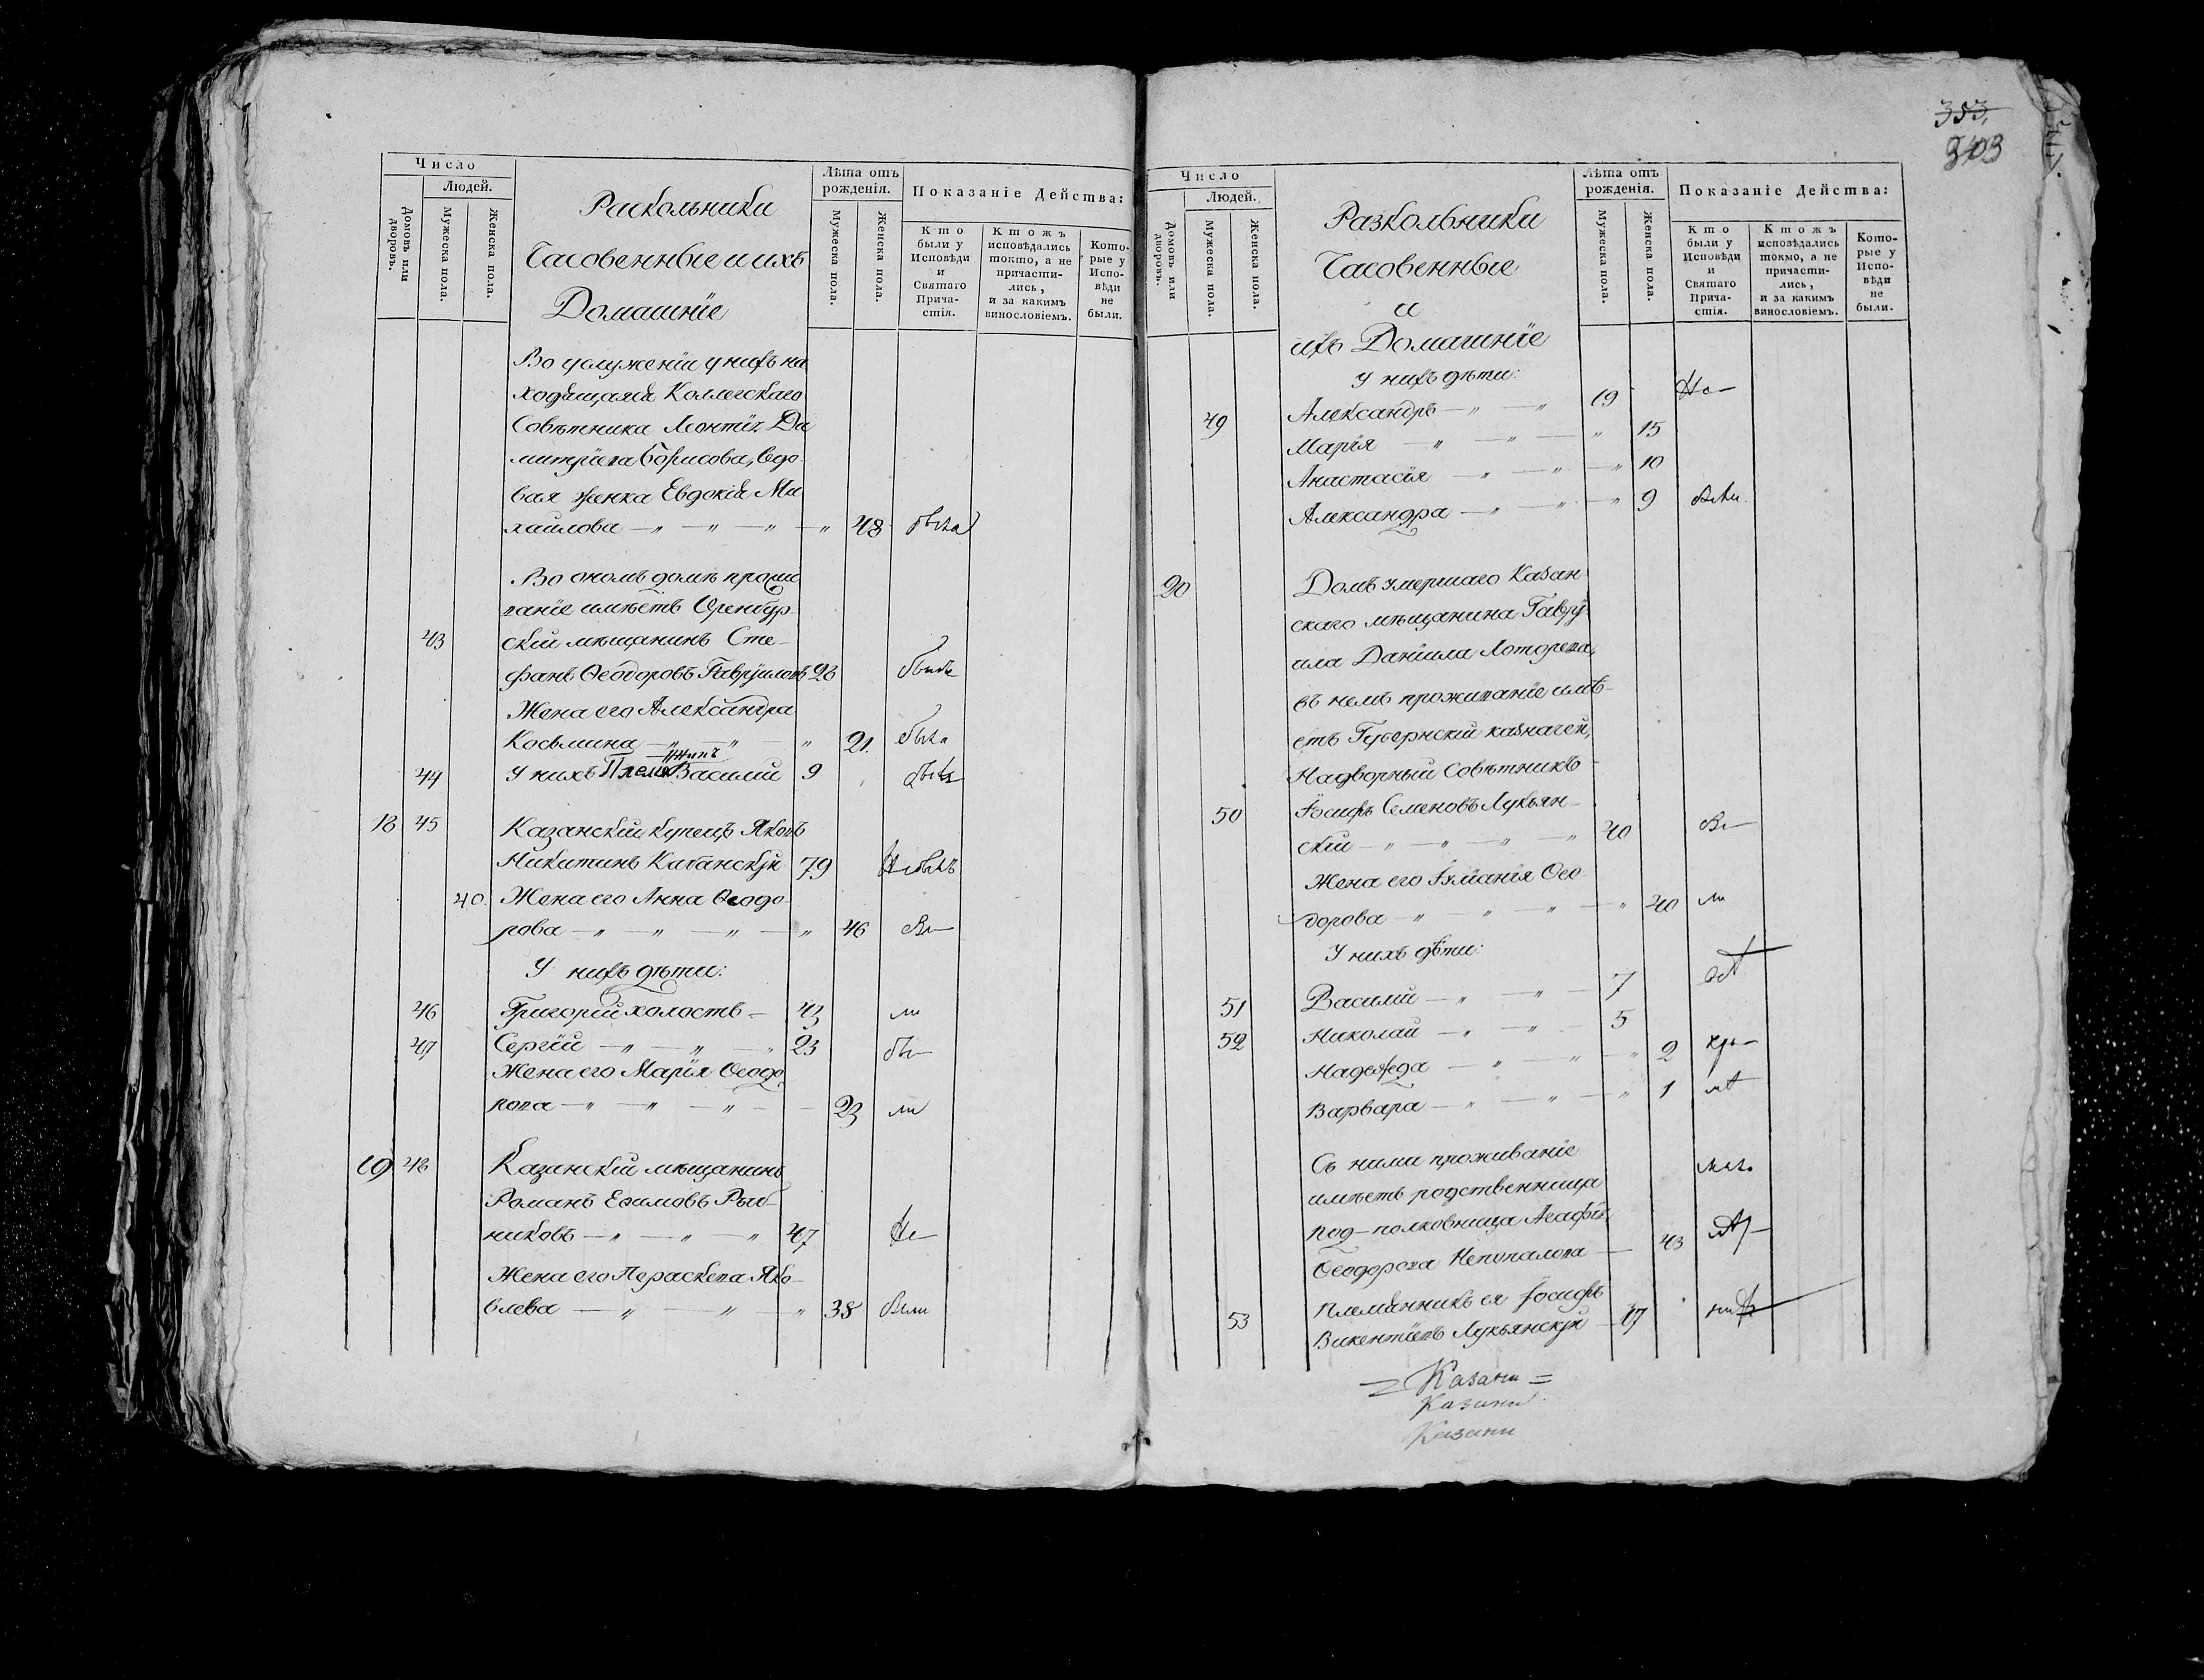 Число
Людей.
Домовъ или дворовъ.
Мужеска пола.
Женска пола.
Раскольники
Часовенные и ихъ
Домашніе
Лѣта отъ рожденія.
Мужеска пола.
Женска пола.
Показаніе Действа:
Кто были у Исповѣди и Святаго Причастія.
Ктожъ исповѣдались токмо, а не причастились, и за какимъ винословіемъ.
Которые у Исповѣди не были.
Во услуженіи у нихъ на
ходящаяся Коллегскаго
Совѣтника Леонтія Ди
митріева Борисова, вдо
вая женка Евдокія Ми
хайлова — „ — „ — „ — „ 48 была
Во ономъ домѣ прожи
ваніе имѣетъ Оренбур
43 скій мѣщанинъ Сте-
фанъ Ѳеодоровъ Гавриловъ 26 былъ
Жена его Александра
Косьмина — „ — „ — „ 21. была
44 У нихъ Василий 9
18 45 Казанскій купецъ Яковъ
Никитинъ 79 Не былъ
40. Жена его Анна Ѳеодо-
рова — „ — „ — „ — „ 46
У нихъ дѣти:
46 Григорій холостъ — 43 ли
47 Сергій — „ — „ — „ 23 бы—
Жена его Марія Ѳеодо
рова — „ — „ — „ — 23 ли
19 48 Казанскій мѣщанинъ
Романъ Ефимовъ Рыб-
никовъ — „ — „ — „ 47 Не—
Жена его Параскева Яко-
влева — „ — „ — „ 38 были
353.
303
Число
Людей.
Домовъ или дворовъ.
Мужеска пола.
Женска пола.
Разкольники
Часовенные
и
ихъ Домашніе
Лѣта отъ рожденія.
Мужеска пола.
Женска пола.
Показаніе Действа:
Кто были у Исповѣди и Святаго Причастія.
Ктожъ исповѣдались токмо, а не причастились, и за какимъ винословіемъ.
Которые у Исповѣди не были.
У нихъ дѣти:
49 Александръ — „ — „ 19 Не—
Марія — „ — „ — „ 15
Анастасія — „ — „ — „ 10
Александра — „ — „ — „ 9 были.
20 Домъ умершаго Казан
скаго мѣщанина Гаврі
ила Даніила Лоторева,
въ немъ проживаніе имѣ-
етъ Губернскій казначей,
Надворный Совѣтникъ
50 Іосифъ Семеновъ Лукьян-
скій — „ — „ — „ — „ 40
Жена его Ѳео-
дорова — „ — „ — „ — „ 40 ли
У нихъ дѣти:
51 Василій — „ — „ — 7
52 Николай — „ — „ — 5
Надежда — „ — „ — „ 2
Варвара — „ — „ — „ 1
Съ ними проживаніе
имѣетъ родственница
под-полковница Агафья
Ѳеодорова — 43
Племянникъ ея Іосифъ
53 Викентіевъ Лукьянскій — 17
= Казани =
Казани
Казани